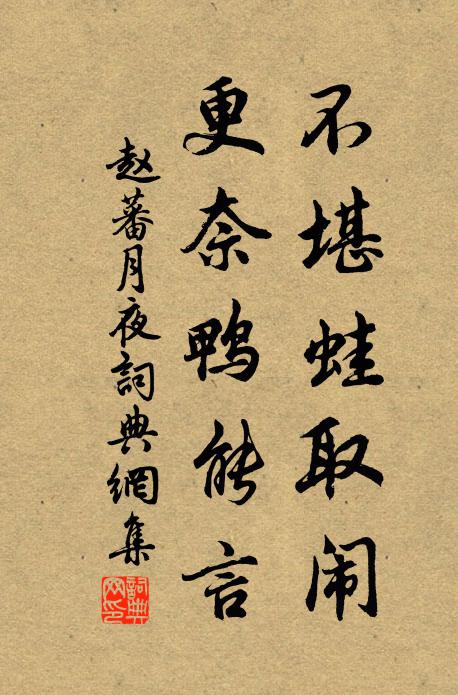 不堪蛙取闹
更奈鸭能言
赵蕃月夜詞典網集
詞典网印